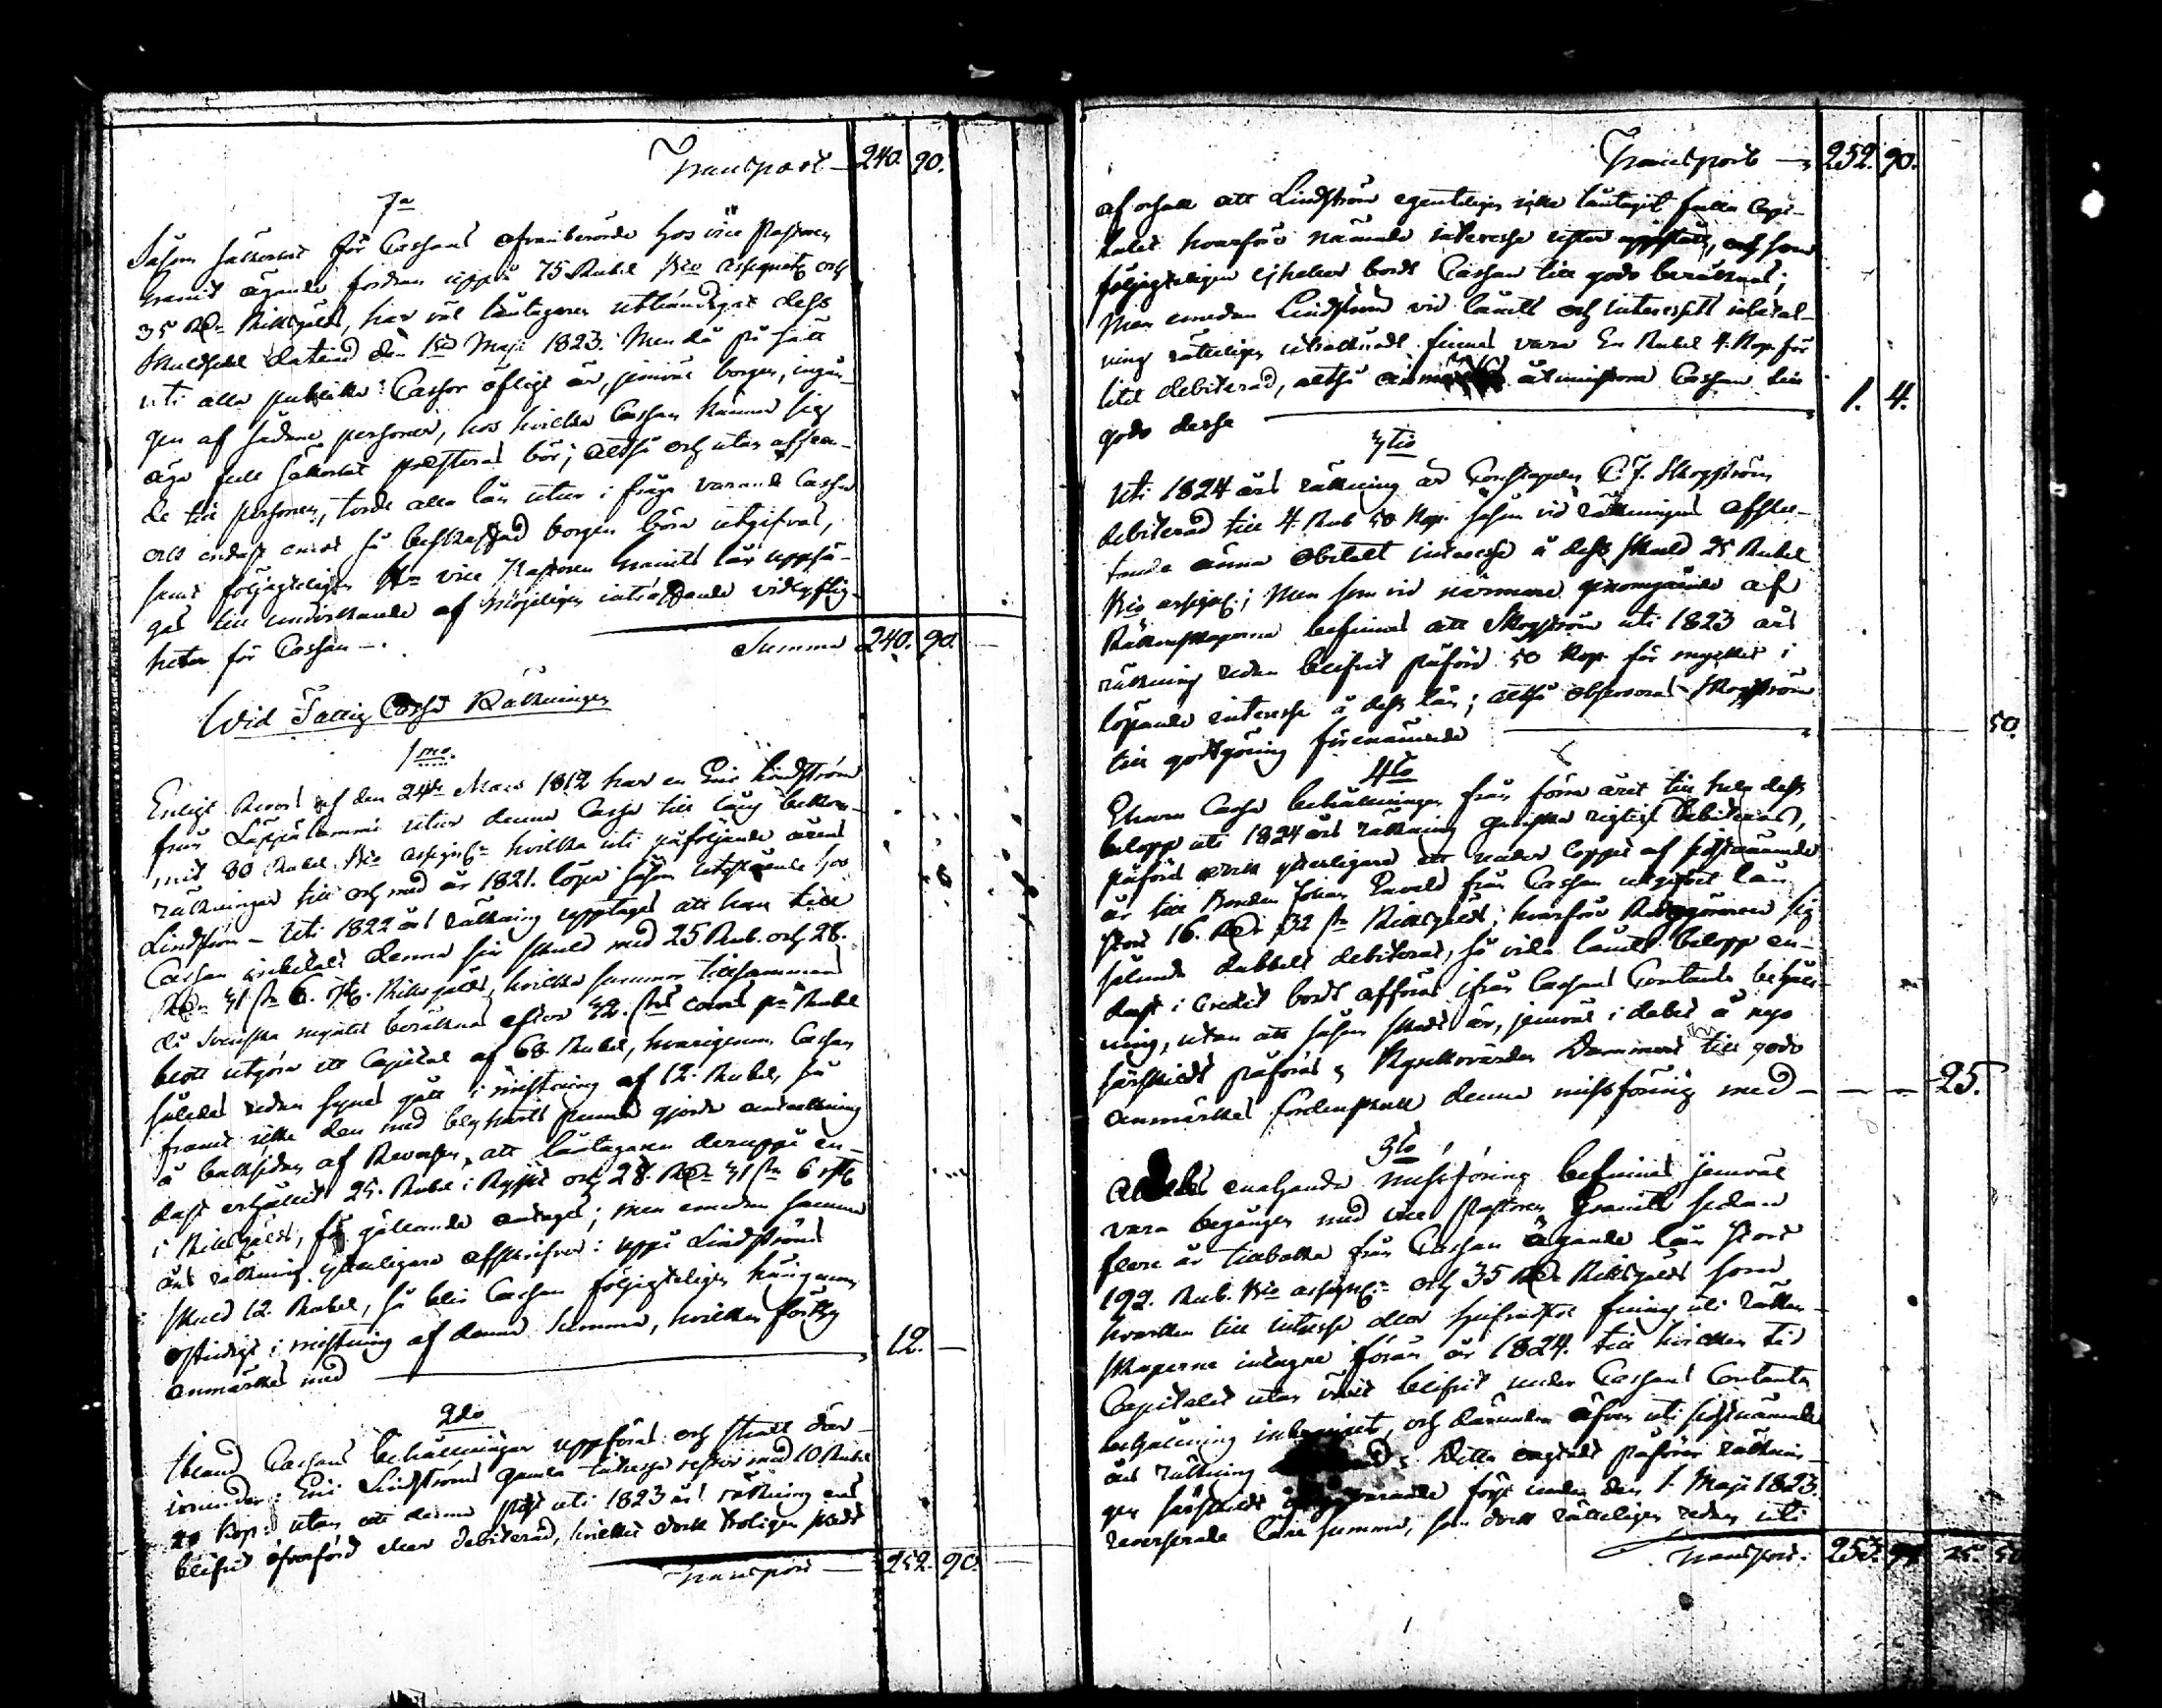 Transport — 240. 90.
7a
Såsom säkerhet för Cassans ofvanberörde hos vice Pastoren
Granit ägande fordran uppå 75 Rubel Bco Assignat. och
35 Rd. Riksgälds, har väl låntagaren uthändigat dess
skuldsedel daterad den 1sta Maji 1823. Men då på sätt
uti alla publika Cassor öfligt är, jemväl borgen, ingån-
gen af sådane personer, hos hvilka Cassan känner sig
äga full säkerhet præsteras bör; altså och utan afseen-
de till personen, torde alla lån utur i fråga varande Cassa
endast emot så beskaffad borgen böra utgifvas,
följagteligen vice Pastoren Granits lån uppsä-
gas till undvikande af möjeligen inträffande vidlyftig-
heter för Cassan —.
Summa 240. 90.
Wid Fattig Cassa Räkningen
1mo.
Enligt Revers af den 24de Mars 1812 har en Eric Lindström
från utur denna Cassa till låns bekom-
mit 80 Rubel Bco Assignat. hvilka uti påföljande årens
räkningar till och med år 1821. löpa såsom utestående hos
Lindström — Uti 1822 års räkning upptages att han till
Cassan inbetalt denna sin skuld med 25 Rub. och 28.
Rd. 31 s. 6. r. Riksgälds, hvilka summor tillsammans
då Svenska myntet beräknas efter 32. s. cours pr Rubel
blott utgöra ett Capital af 68 Rubel, hvarigenom Cassan
således redan synes gått i mistning af 12. Rubel, så
framt icke den med blyharts penna gjorde anteckning
å baksidan af Reversen, att låntagaren deruppå en-
dast erhållit 25. Rubel i Ryskt och 28. Rd. 31 s. 6 r.
i Riksgälds, får gällande antagas; men emedan samma
års räkning ytterligare afskrifver: uppå Lindströms
skuld 12. Rubel, så blir Cassan följagteligen härigenom
i mistning af denna summa, hvilken
anmärkes med 12. —
2do
Ibland Cassans behållningar uppföras och skall där-
inunder: Eric Lindströms gamla interesse rester med 10 Rubel
20 Kop: utan att denna post uti 1823 års räkning ens
blifvit öfverförd eller debiterad, hvilket dock troligen skedt
Transport — 252. 90.
Transport — 252. 90.
af orsak att Lindström egenteligen icke låntagit fulla Capi-
talet hvarföre nämnde interesse icke uppstått, och som
följagteligen ej heller bordt Cassan till godo beräknas;
Men emedan Lindström vid lånets och interessets inbetal-
ning rätteligen uträknadt finnes vara En Rubel 4. Kop. för
litet debiterad, altså åtminstone Cassan till
godo desse 1. 4.
3tio
Uti 1824 års räkning är C. J. Skogström
debiterad till 4. Rub 50 Kop. såsom vid räkningens afslu-
tande ännu obetalt interesse å dess skuld 25 Rubel
Bco assign.; Men som vid närmare genomgående af
Räkenskaperna befinnes att Skogström uti 1823 års
räkning redan blifvit påförd 50 Kop. för mycket i
löpande interesse å dess lån; altså observeras Skogström
till godtgöring förenämnde 50.
4to
Ehuru Cassa behållningen från förra året till hela dess
belopp uti 1824 års räkning ganska rigtigt debiteras,
påföres ytterligare ett under loppet af sistnämnde
år till Bonden Johan från Cassan utgifvet lån
stort 16. Rd. 32 s. Riksgälds; hvarföre sig
sålunda dubbelt debiteras, så vida lånets belopp en-
dast i Credit bordt afföras ifrån Cassans Contanta behåll-
ning, utan att såsom skedt är, jemväl i debet å nyo
särskildt påföras; Kyrkovärden till godo
anmärkes fördenskull denna missföring med — — — 25.
5to
enahanda missföring befinnes jemväl
vara begången med vice Pastoren Granits sedan
flere år tillbaka från Cassan ägande lån stort
192. Rub. Bco assign. och 35 Rd. Riksgälds som
hvarken till interesse eller hufvudstol finnes uti räken-
skaperne intagne förän år 1824. till hvilken tid
Capitalet utan tvist blifvit under Cassans Contanta
behållning inberäknat, och därunder äfven uti sistnämnde
års räkning Detta oagtadt påföres räknin-
gen särskildt först under den 1. Maji 1823.
reverserade låne summa, som dock rätteligen redan uti
Transport: 253. 94 25. 50